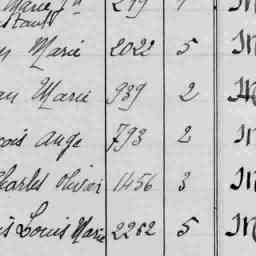 Marie 219 1 M
Marie 2022 5 M
Marie 939 2 M
ange 793 2 M
Charles Olivier 1456 3 M
Louis Marie 2262 5 M